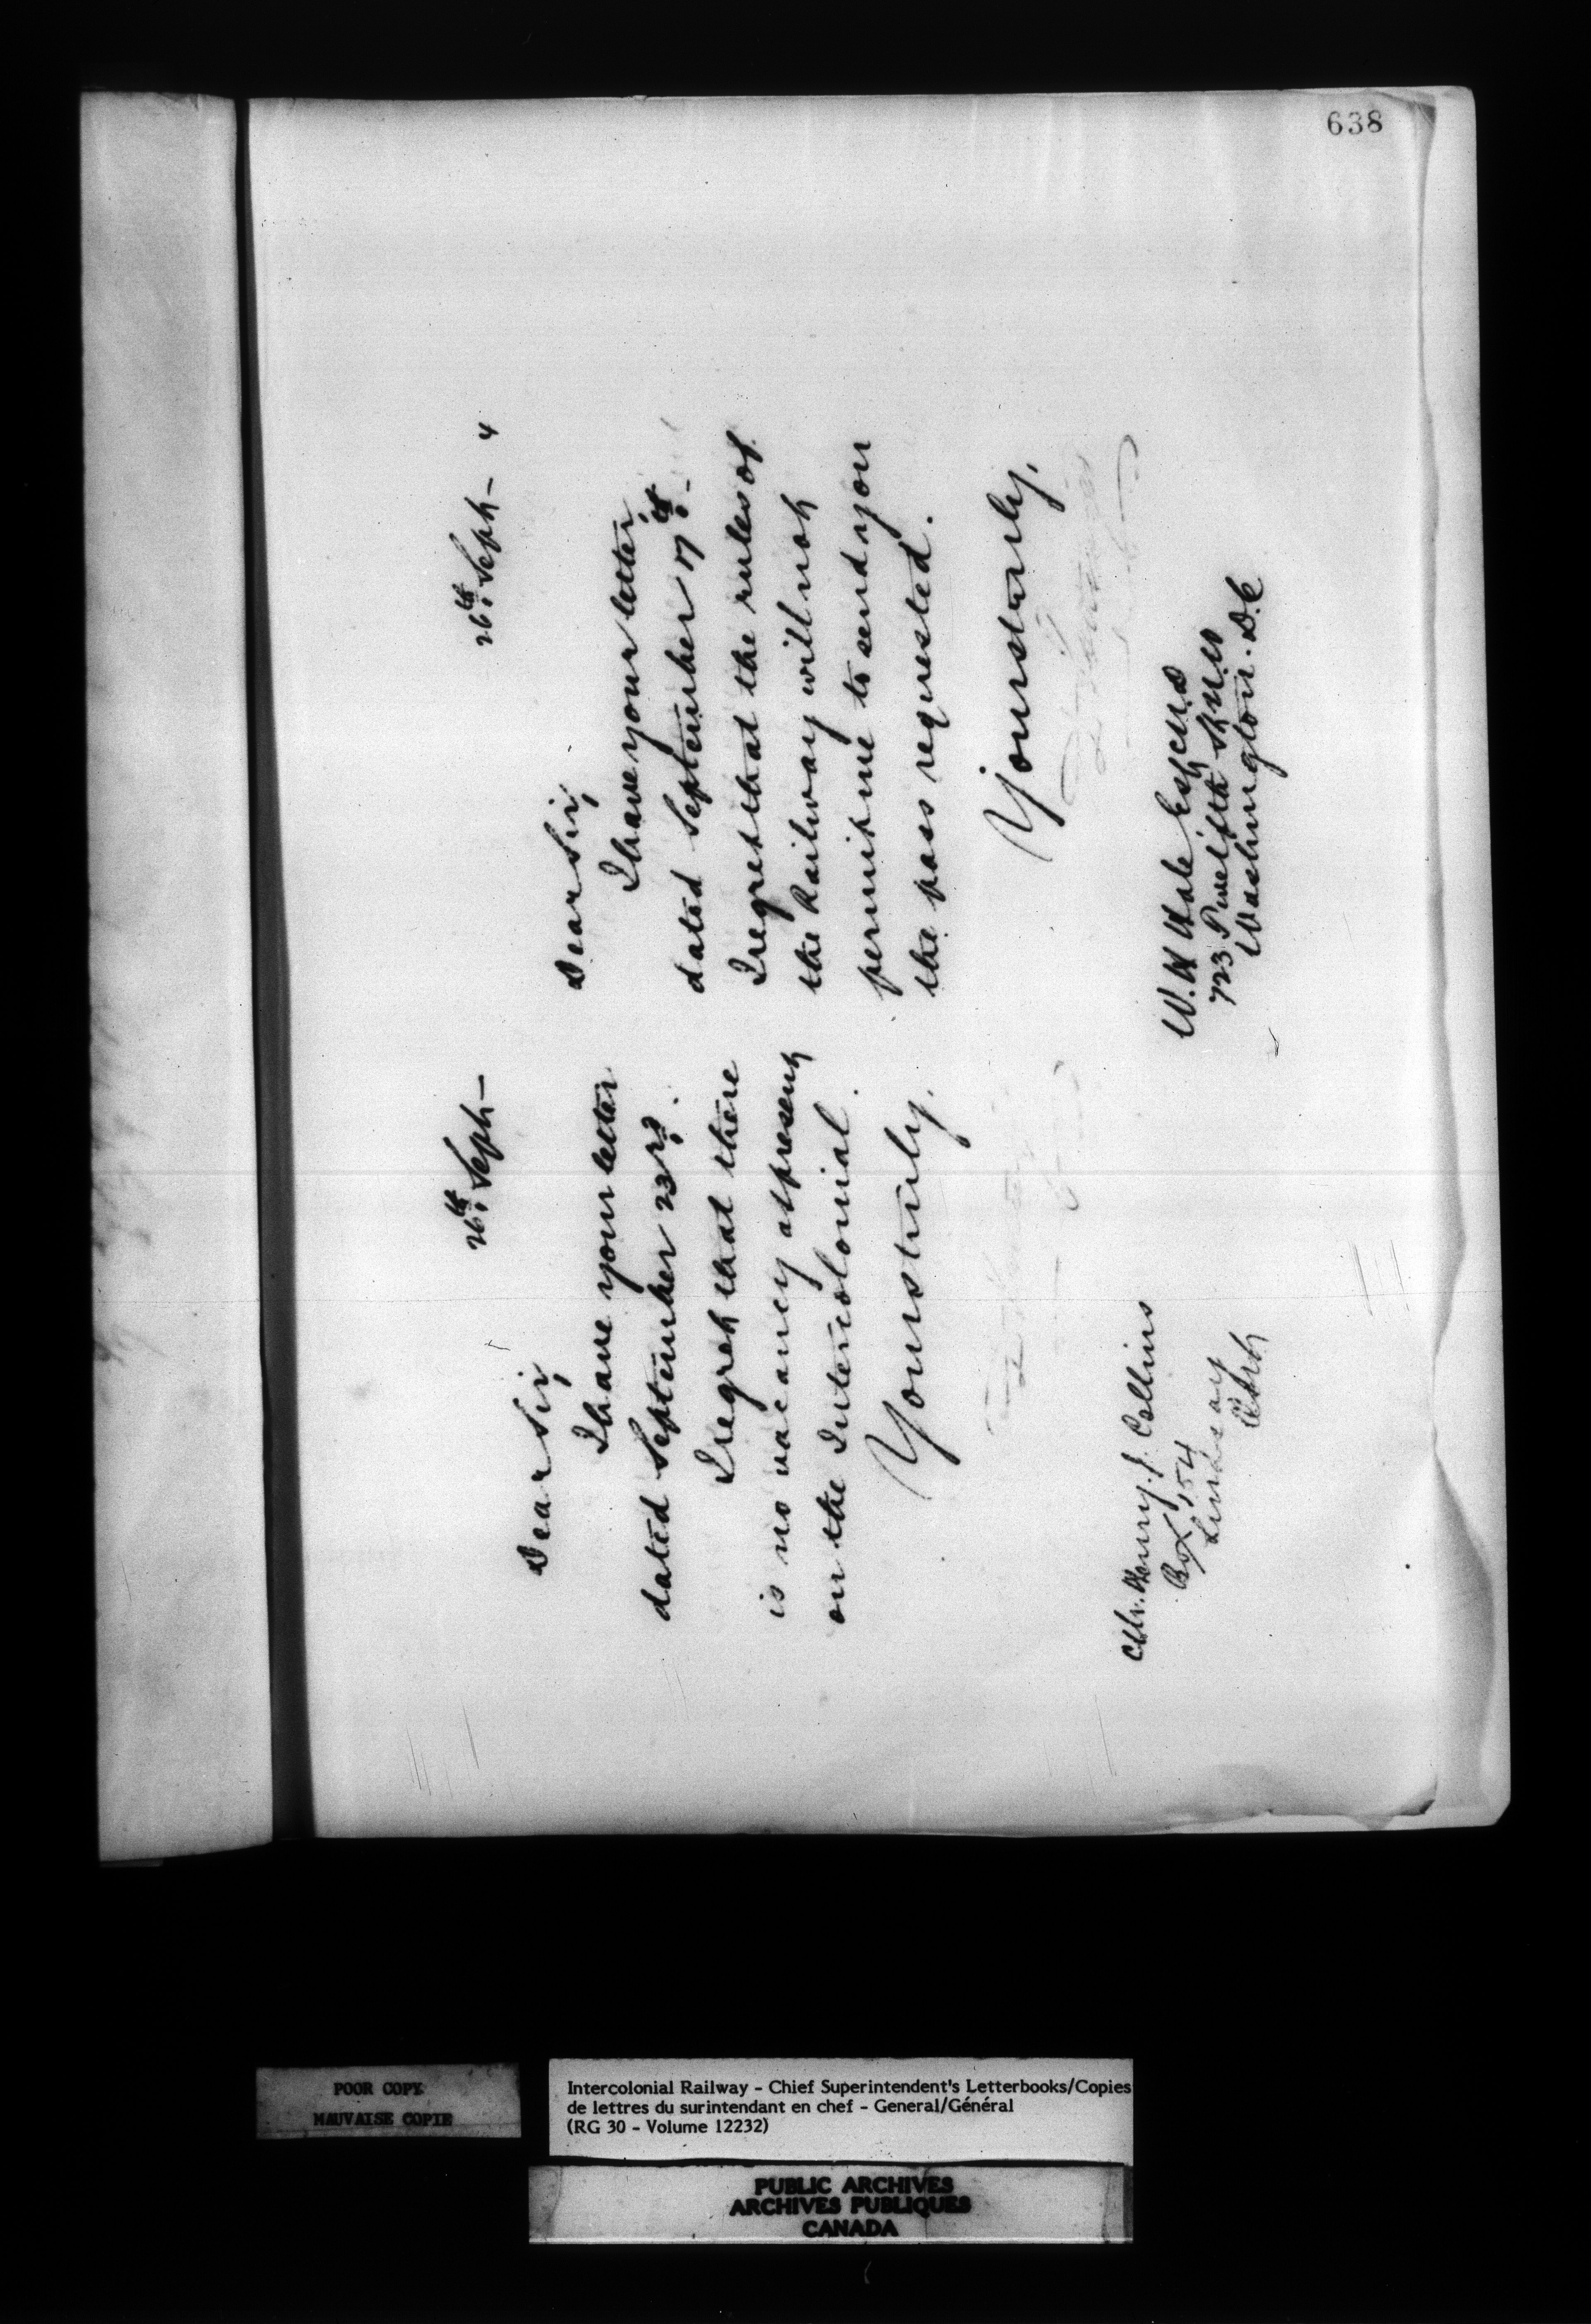 638
26th Sept —
Dear Sir,
I have your letter
dated September 23rd.
I regret that there
is no vacancy at present
on the Intercolonial.
Yours truly.
Mr. Henry J. Collins
Box 154
Lindsay
26th Sept — 4
Dear Sir,
I have your letter,
dated September 17th —
I regret that the rules of
the Railway will not
permit me to send you
the pass requested.
Yours truly,
W. H. Hale Esq M.D
723 Twelfth St N.W
Washington. D.C
POOR COPY
MAUVAISE COPIE
Intercolonial Railway - Chief Superintendent's Letterbooks/Copies
de lettres du surintendant en chef - General/Général
(RG 30 - Volume 12232)
PUBLIC ARCHIVES
ARCHIVES PUBLIQUES
CANADA